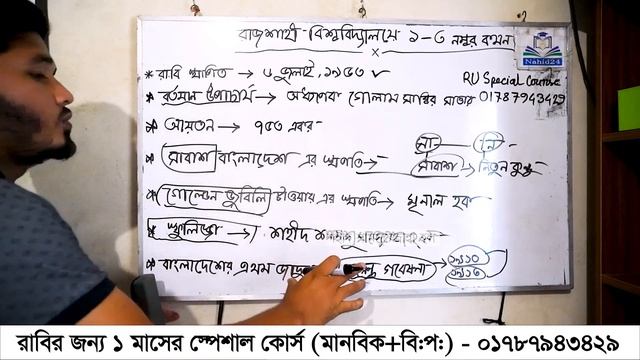 রাজশাহী বিশ্ববিদ্যালয়ে ১-৩ নম্বর কমন
Nahid24
* রাবি স্থাপিত → ৬ জুলাই, ১৯৫৩ ✓
RU Special Course
* বর্তমান উপাচার্য → অধ্যাপক গোলাম সাব্বির সাত্তার
01787943429
* আয়তন → ৭৫৩ একর
সা — নি
* সাবাশ বাংলাদেশ এর স্থপতি →
সাবাশ নিতুন কুন্ডু
* গোল্ডেন জুবিলি টাওয়ার এর স্থপতি → মৃনাল হক
* স্ফুলিঙ্গ → শহীদ
* বাংলাদেশের প্রথম গবেষণা
১৯১০
রাবির জন্য ১ মাসের স্পেশাল কোর্স (মানবিক+বি:প:) - ০১৭৮৭৯৪৩৪২৯